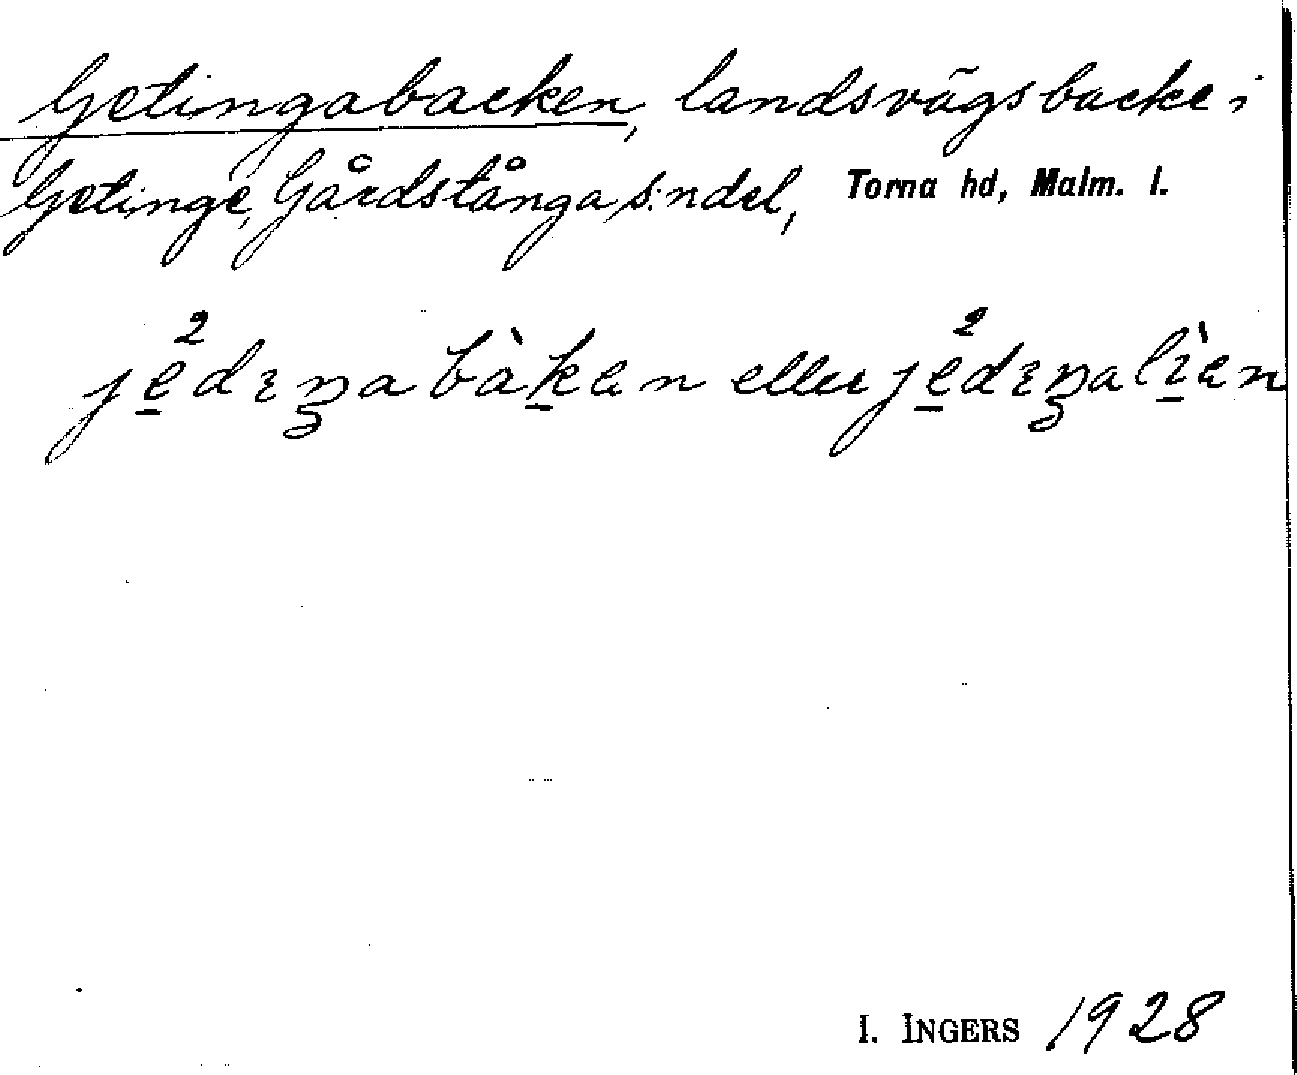 Getingabacken, landsvägsbacke i
Getinge, Gårdstånga s:ndel, Torna hd, Malm. l.
je̠²dɪŋabàk̠ən eller je̠²dɪŋalì̠ən
I. INGERS 1928